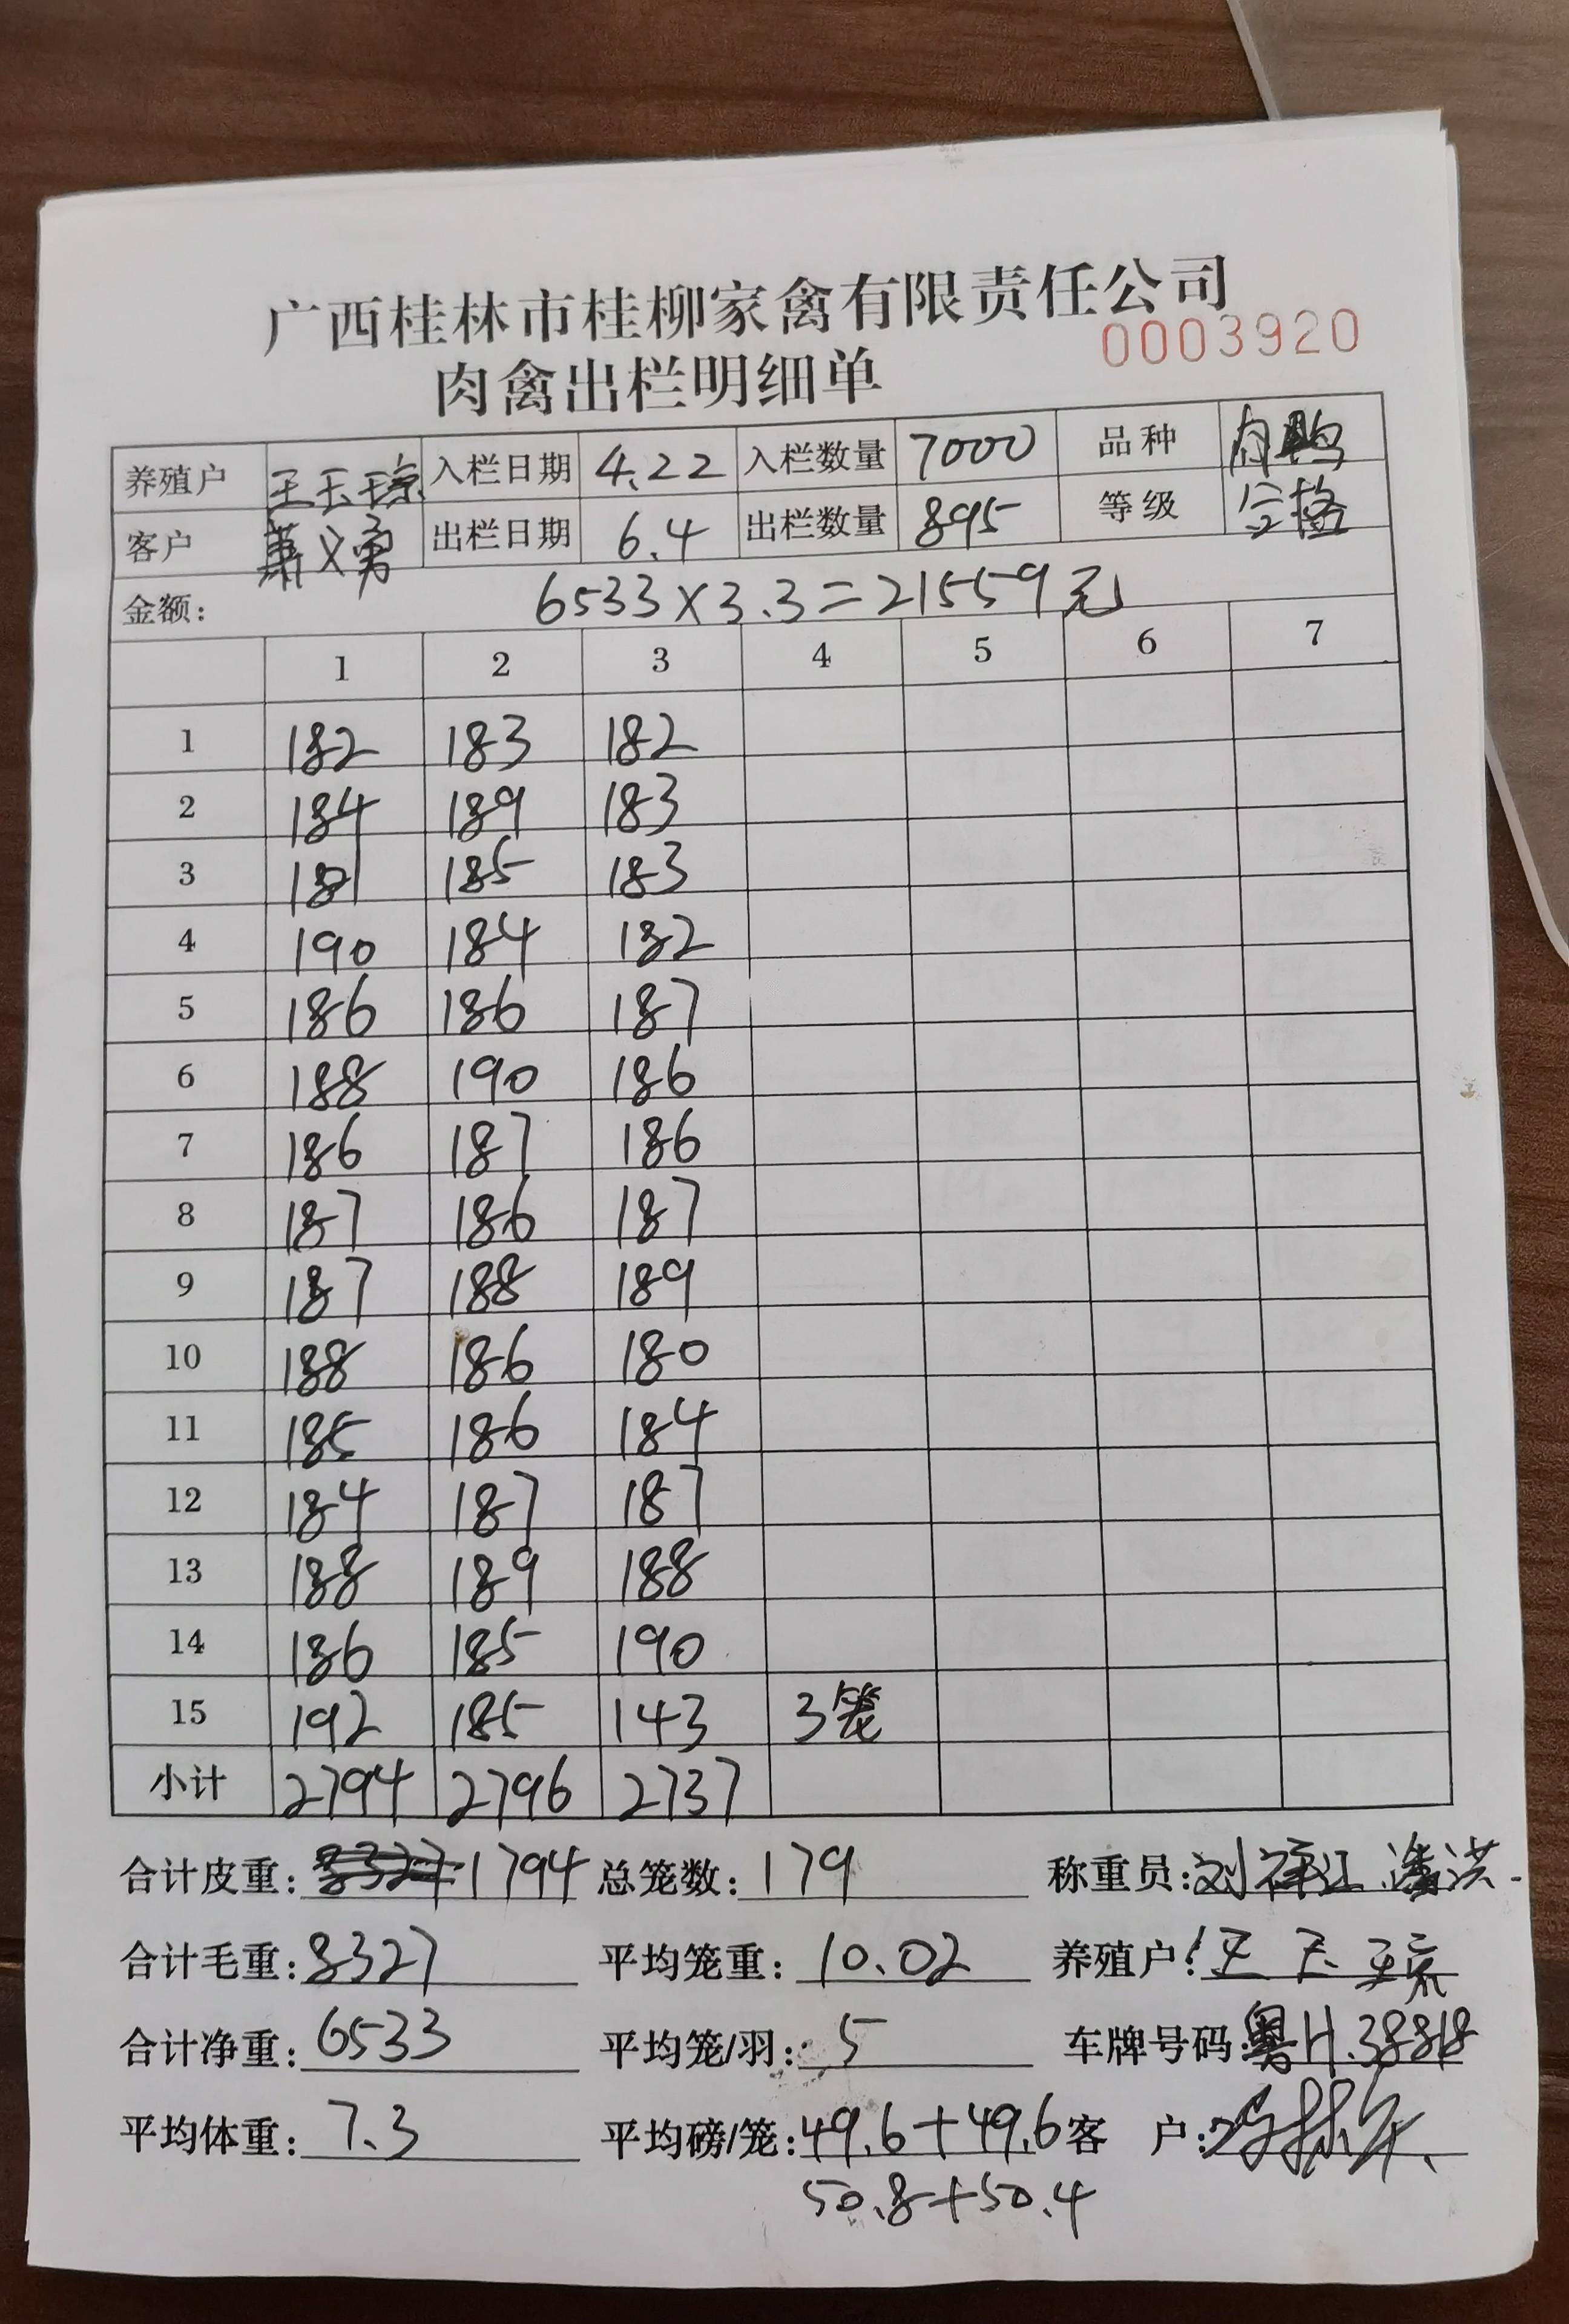 广西桂林市桂柳家禽有限责任公司
0003920
肉禽出栏明细单
养殖户 王玉琼 入栏日期 4.22 入栏数量 7000 品种 肉鸭
客户 萧义勇 出栏日期 6.4 出栏数量 895 等级 合格
金额: 6533×3.3=21559元
1 2 3 4 5 6 7
1 182 183 182
2 184 189 183
3 181 185 183
4 190 184 182
5 186 186 187
6 188 190 186
7 186 187 186
8 187 186 187
9 187 188 189
10 188 186 180
11 185 186 184
12 184 187 187
13 188 189 188
14 186 185 190
15 192 185 143 3笼
小计 2794 2796 2737
合计皮重: 1794 总笼数: 179 称重员: 刘祥江 潘洪
合计毛重: 8327 平均笼重: 10.02 养殖户: 王玉琼
合计净重: 6533 平均笼/羽: 5 车牌号码: 粤H.38818
平均体重: 7.3 平均磅/笼: 49.6+49.6 客 户:
50.8+50.4